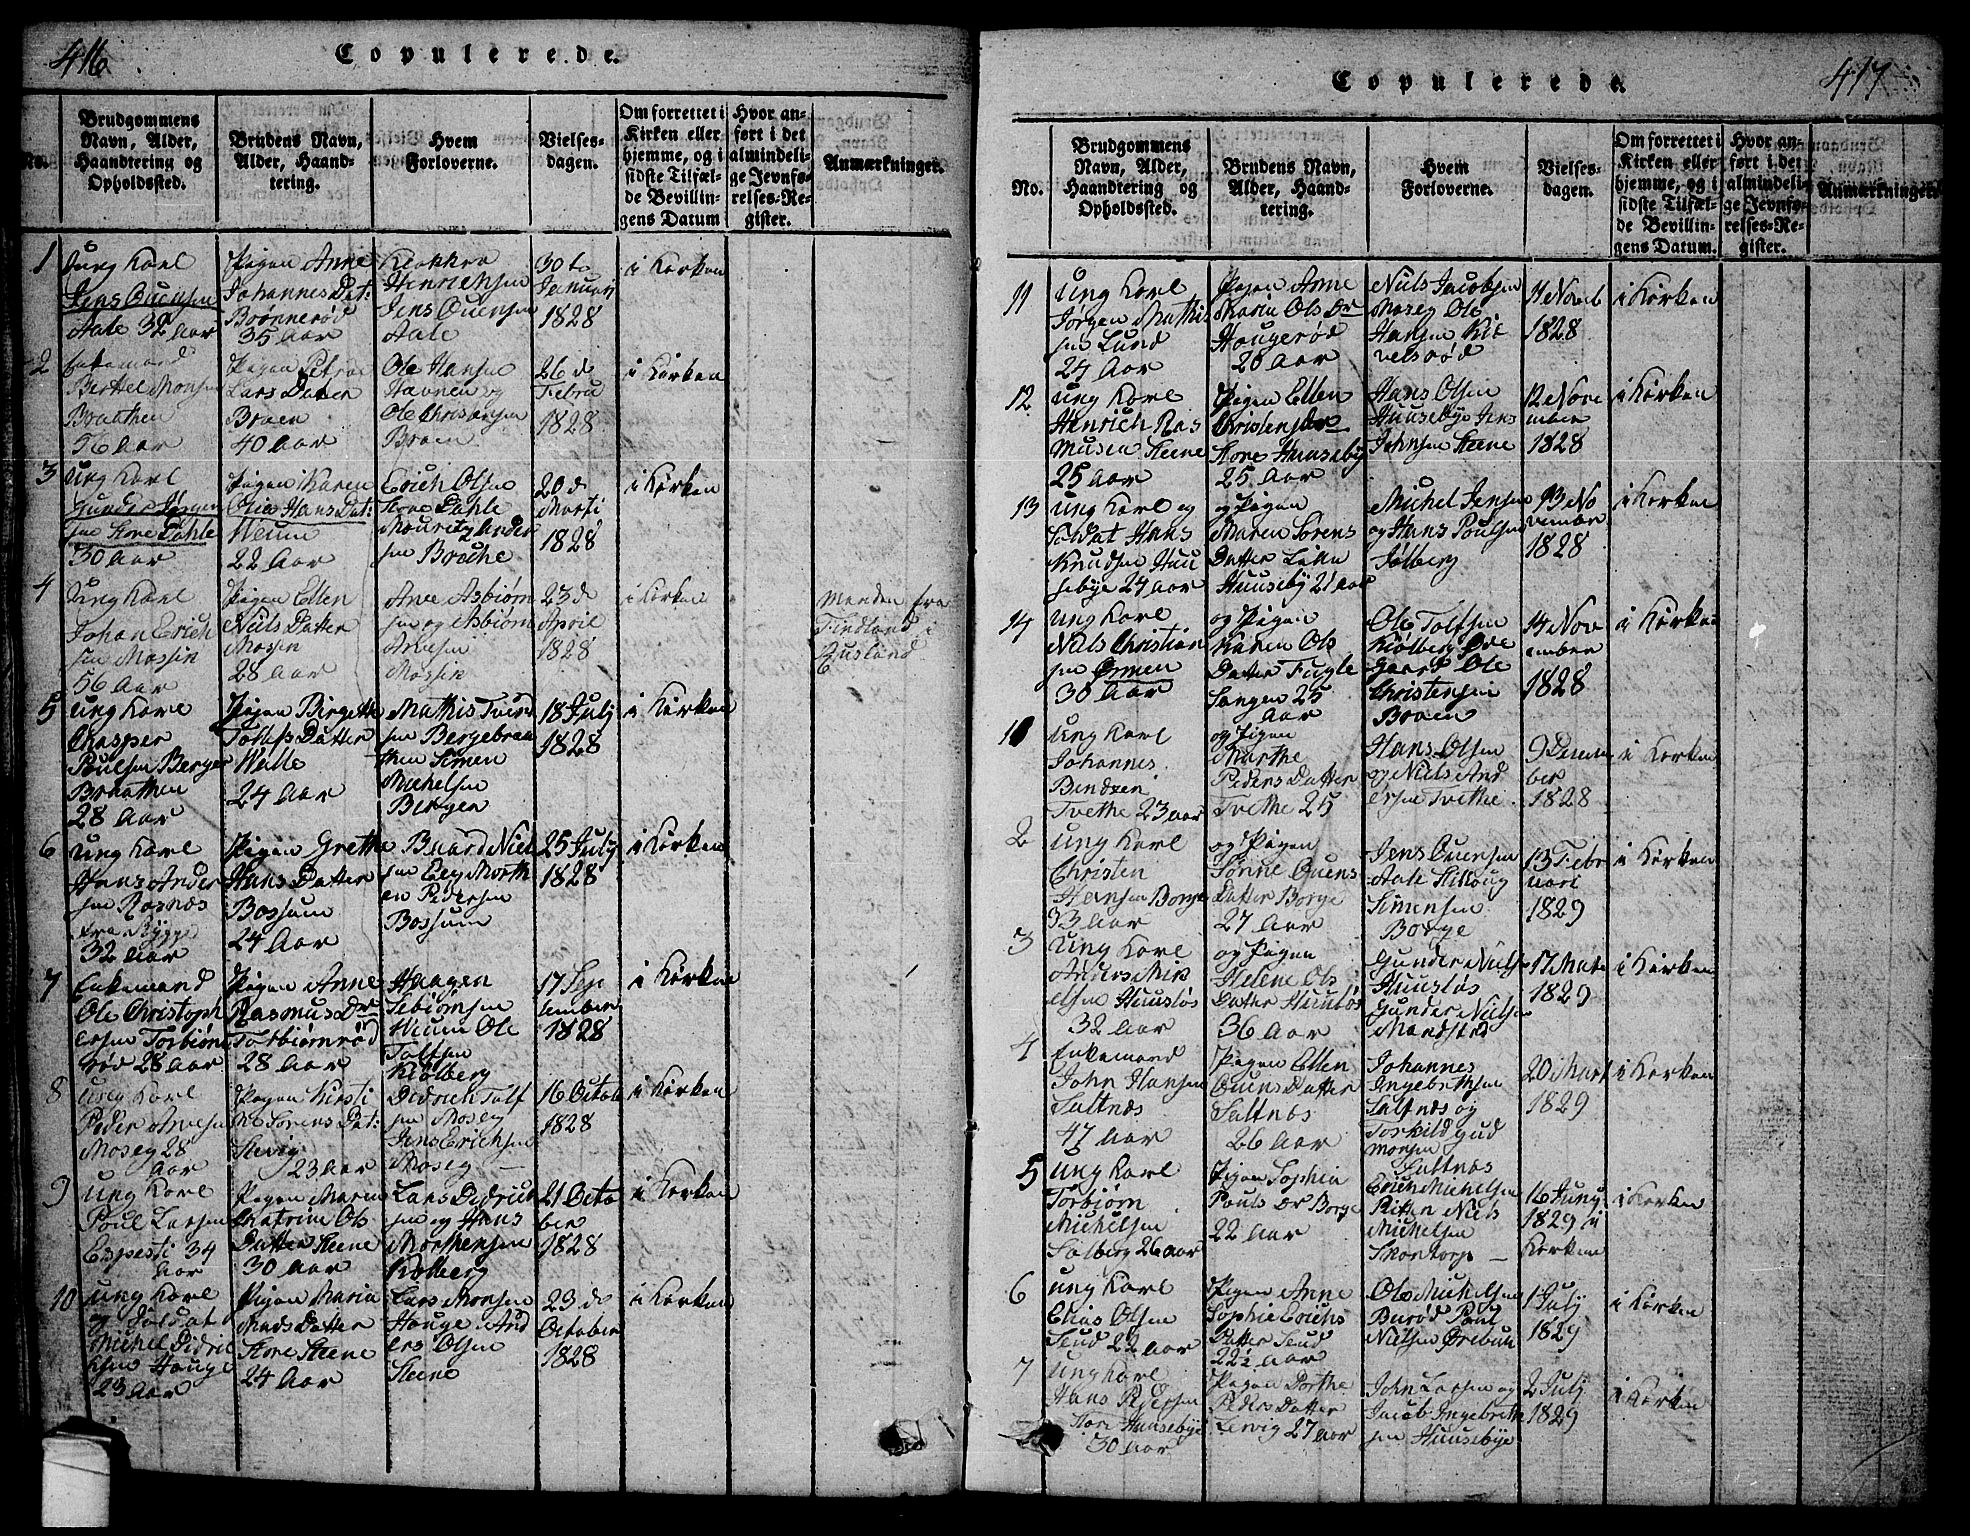 416
Copulerede.
No.
Brudgommens
Navn, Alder,
Haandtering og
Opholdssted.
Brudens Navn,
Alder, Haand-
tering.
Hvem
Forloverne.
Vielses-
dagen.
Om forrettet i
Kirken eller
hjemme, og i
sidste Tilfæl-
de Bevillin-
gens Datum
Hvor an-
ført i det
almindeli-
ge Jevnfø-
relses-Re-
gister.
Anmærkninger.
1
Ung Karl
Jens Ouensen
Aale 32 aar
Pigen Anne
Johannes Dat:
Brønnerød
35 aar
Klokker
Henrichsen
Jens Ouensen
Aale
30te
Januari
1828
i Kirken
2
Enkemand
Berthel Monsen
Braathen
56 aar
Pigen Petroe
Lars Datter
Braen
40 aar
Ole Hansen
Havnen og
Ole Christensen
Braen
26 de
Febru
1828
i Kirken
3
Ung Karl
Gunder Jørgen
sen Store Dahle
30 aar
Pigen Karen
Olia Hans Dat:
Weum
22 Aar
Erich Olsen
Store Dahle
Mouritz Ander
sen Broche
20 d
Marti
1828
i Kirken
4
Ung Karl
Johan Erich
sen Mossin
56 Aar
Pigen Ellen
Niels Datter
Mossin
28 Aar
Arve Asbiørn
sen og Asbiørn
Arvesen
Mossin
23 d
April
1828
i Kirken
Manden fra
Findland i
Rusland
5
Ung Karl
Chasper
Poulsen Berger
Braathen
28 Aar
Pigen Birgette
Tolefs Datter
Walle
24 Aar
Mathis Tveer
sen Bergebraa
then Simen
Michelsen
Bergen
18 July
1828
i Kirken
6
Ung Karl
Hans Ander
sen Rosnæs
fra Rygge
32 aar
Pigen Grethe
Hans Datter
Bossum
24 Aar
Baard Niel
sen Eeg Morth
en Pedersen
Bossum
25 July
1828
i Kirken
7
Enkemand
Ole Christoph
ersen Torbiørn
rød 28 aar
Pigen Anne
Rasmus Dr
Torbiørnrød
28 Aar
Haagen
Tebiørnsen
Weum Ole
Tolfsen
Kiølberg
17 Sep
tember
1828
i Kirken
8
Ung Karl
Peder Arvesen
Moseg 28
Aar
Pigen Kirsti
Sørens Dat:
Slevig
23 aar
Didrich Tolf
sen Moseg
Jens Erichsen
Moseg
16 Octob
1828
i Kirken
9
Ung Karl
Poul Larsen
Enpesti 34
aar
Pigen Maria
Chatrine Ols
Datter Steene
30 Aar
Lars Didrich
sen og Hans
Morthensen
Kiølberg
21 Octo
ber
1828
i Kirken
10
Ung Karl
og Soldat
Michel Didric
hsen Houge
23 Aar
Pigen Maria
Mads Datter
Store Steene
24 Aar
Lars Monsen
Houge And
ers Olsen
Steene
23 de
October
1828
i Kirken
417
Copulerede.
No.
Brudgommens
Navn, Alder,
Haandtering og
Opholdssted.
Brudens Navn,
Alder, Haand-
tering.
Hvem
Forloverne.
Vielses-
dagen.
Om forrettet i
Kirken eller
hjemme, og i
sidste Tilfæl-
de Bevillin-
gens Datum.
Hvor an-
ført i det
almindeli-
ge Jevnfø-
relses-Re-
gister.
Anmærkninger.
11
Ung Karl
Jørgen Mathi
sen Lund
24 Aar
Pigen Anne
Maria Ols Dr
Hougerød
28 Aar
Niels Jacobsen
Moseg Ole
Hansen Kic
velsrød
4 Novemb
1828
i Kirken
12
Ung Karl
Henrich Ras
musen Steene
25 aar
Pigen Ellen
Christens dr
Store Huuseby
25 Aar
Hans Olsen
Huusebye Jens
Johnsen Steene
12 Nove
mber
1828
i Kirken
13
Ung Karl og
Soldat Hans
Knudsen Huu
sebye 24 aar
og Pigen
Maren Sørens
Datter Lille
Huuseby 21 aar
Michel Jensen
og Hans Poulsen
Sølberg
13 No
vember
1828
i Kirken
14
Ung Karl
Niels Christian
sen Ormen
30 Aar
og Pigen
Karen Ols
Datter Fugle
Sangen 25
aar
Ole Tolfsen
Kiølberg Øde
gaard Ole
Christensen
Braen
14 Nov
ember
1828
i Kirken
1
Ung Karl
Johannes
Bendxen
Tvethe 23 aar
og Pigen
Marthe
Peders Datter
Tvethe 25
Hans Olsen
og Niels And
ersen Tvethe
9 Decem
ber
1828
i Kirken
2
Ung Karl
Christen
Hansen Borge
33 aar
og Pigen
Sønne Ouens
Datter Borge
27 Aar
Jens Ouensen
Aale Hilloug
Simensen
Borge
13 Febr
uari
1829
i Kirken
3
Ung Karl
Anders Mich
elsen Huusløs
32 Aar
og Pigen
Helene Ols
Datter Huusløs
36 Aar
Gunder Nielse
Huusløs
Gunder Nielsen
Mandstad
17 Mart
1829
i Kirken
4
Enkemand
John Hansen
Saltnæs
47 aar
Pigen Ellen
Ouens Datter
Saltnæs
26 Aar
Johannes
Ingebrethsen
Saltnæs og
Torkild Gud
morsen
Saltnæs
20 Mart
1829
i Kirken
5
Ung Karl
Torbiørn
Michelsen
Solberg 26 aar
Pigen Sophia
Pouls Dr Borge
22 Aar
Erich Michelsen
Niels
Michelsen
Skontorp
16 Juny
1829 i
Kirken
i Kirken
6
Ung Karl
Elias Olsen
Seud 22 Aar
Pigen Anne
Sophie Erichs
Datter Seud
22½ Aar
Ole Michelsen
Burød Poul
Nielsen Ørebun
1 July
1829
i Kirken
7
Ung Karl
Hans Pedersen
Store Huusebye
30 Aar
Pigen Dorthe
Peders Datter
Lervig 27 aar
John Larsen og
Jacob Ingebreth
sen Huusebye
2 July
1829
i Kirken